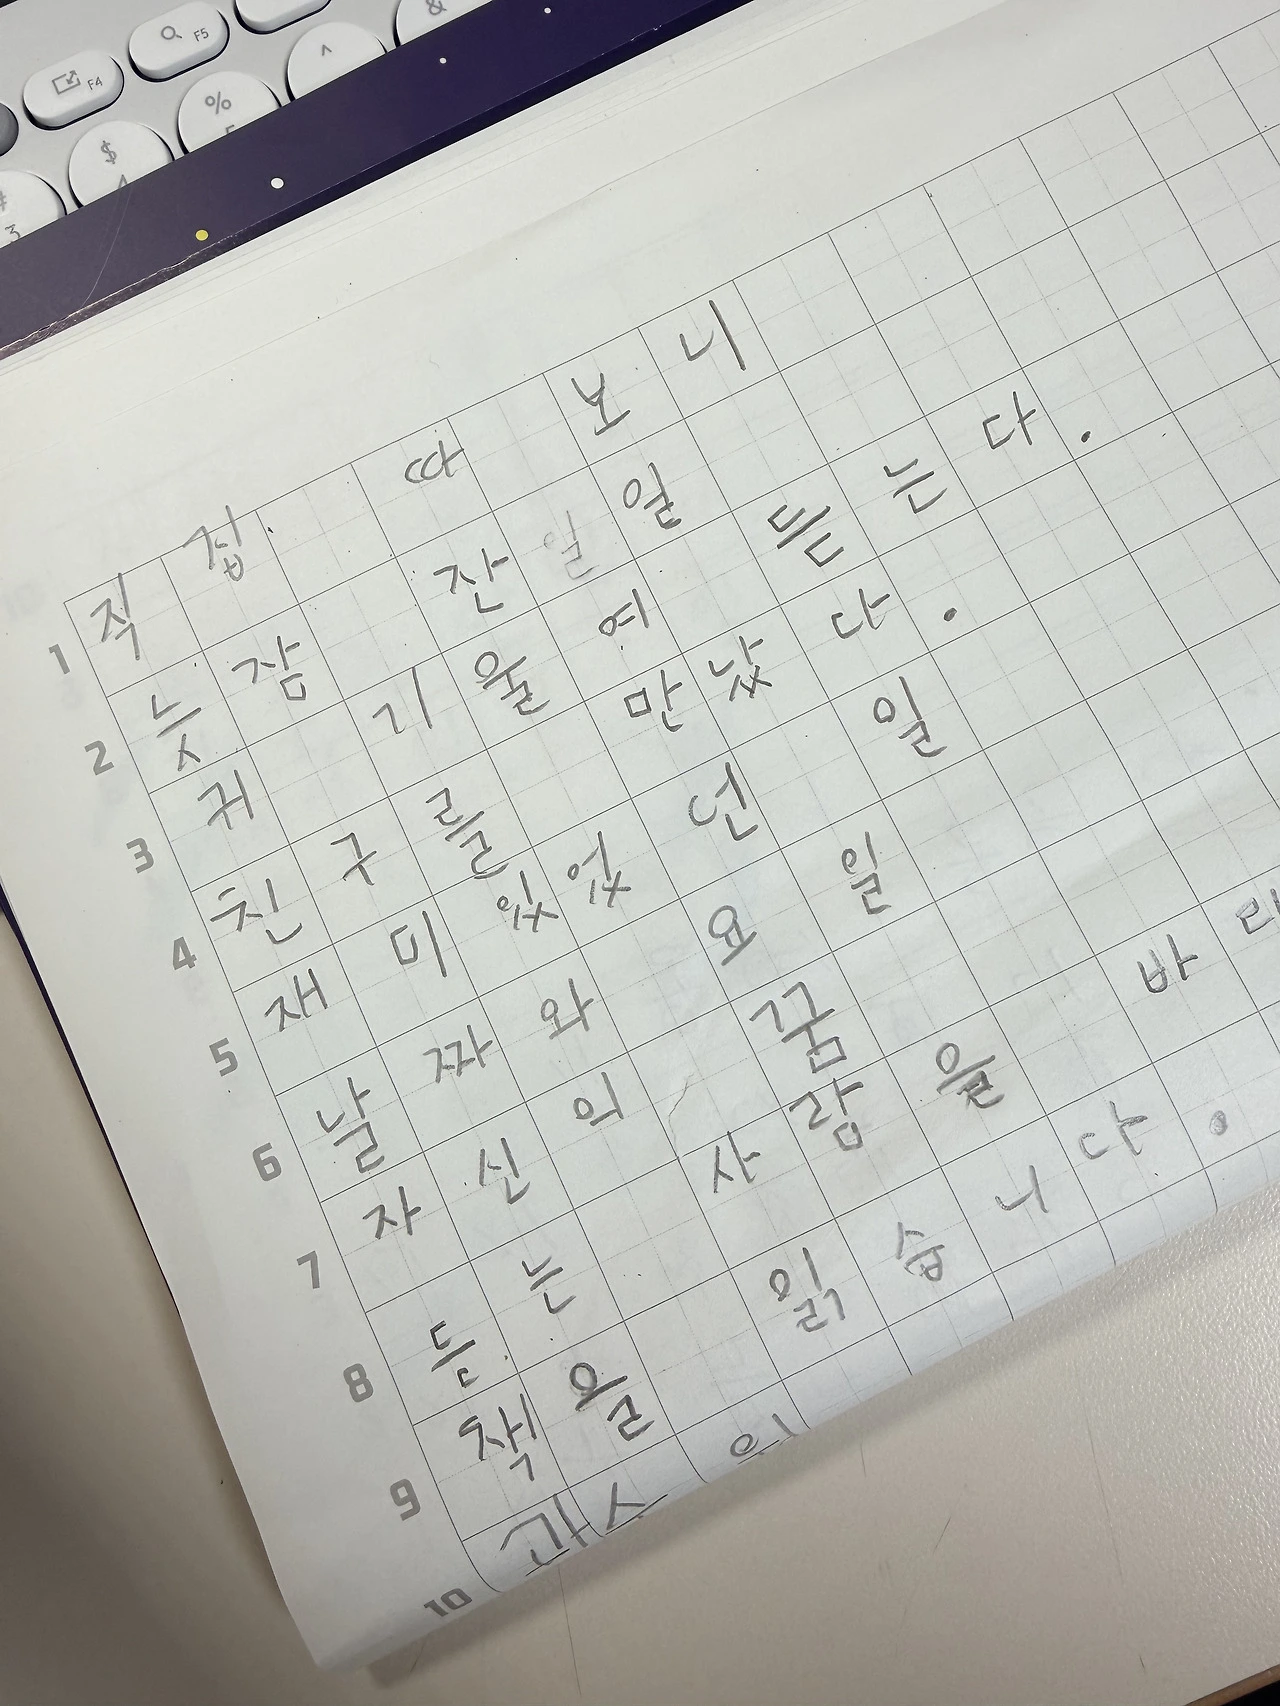 F5
F4
&
^
%
$
#
3
1 직접 따 보니
2 늦잠 잔 일
3 귀 기울여 듣는다.
4 친구를 만났다.
5 재미있었던 일
6 날짜와 요일
7 자신의 꿈
8 듣는 사람을 바라
9 책을 읽습니다.
10